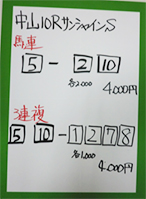 中山10RサンシャインS
馬連
5 - 2 10
各2,000
4,000円
3連複
5 10 - 1 2 7 8
各1,000
4,000円